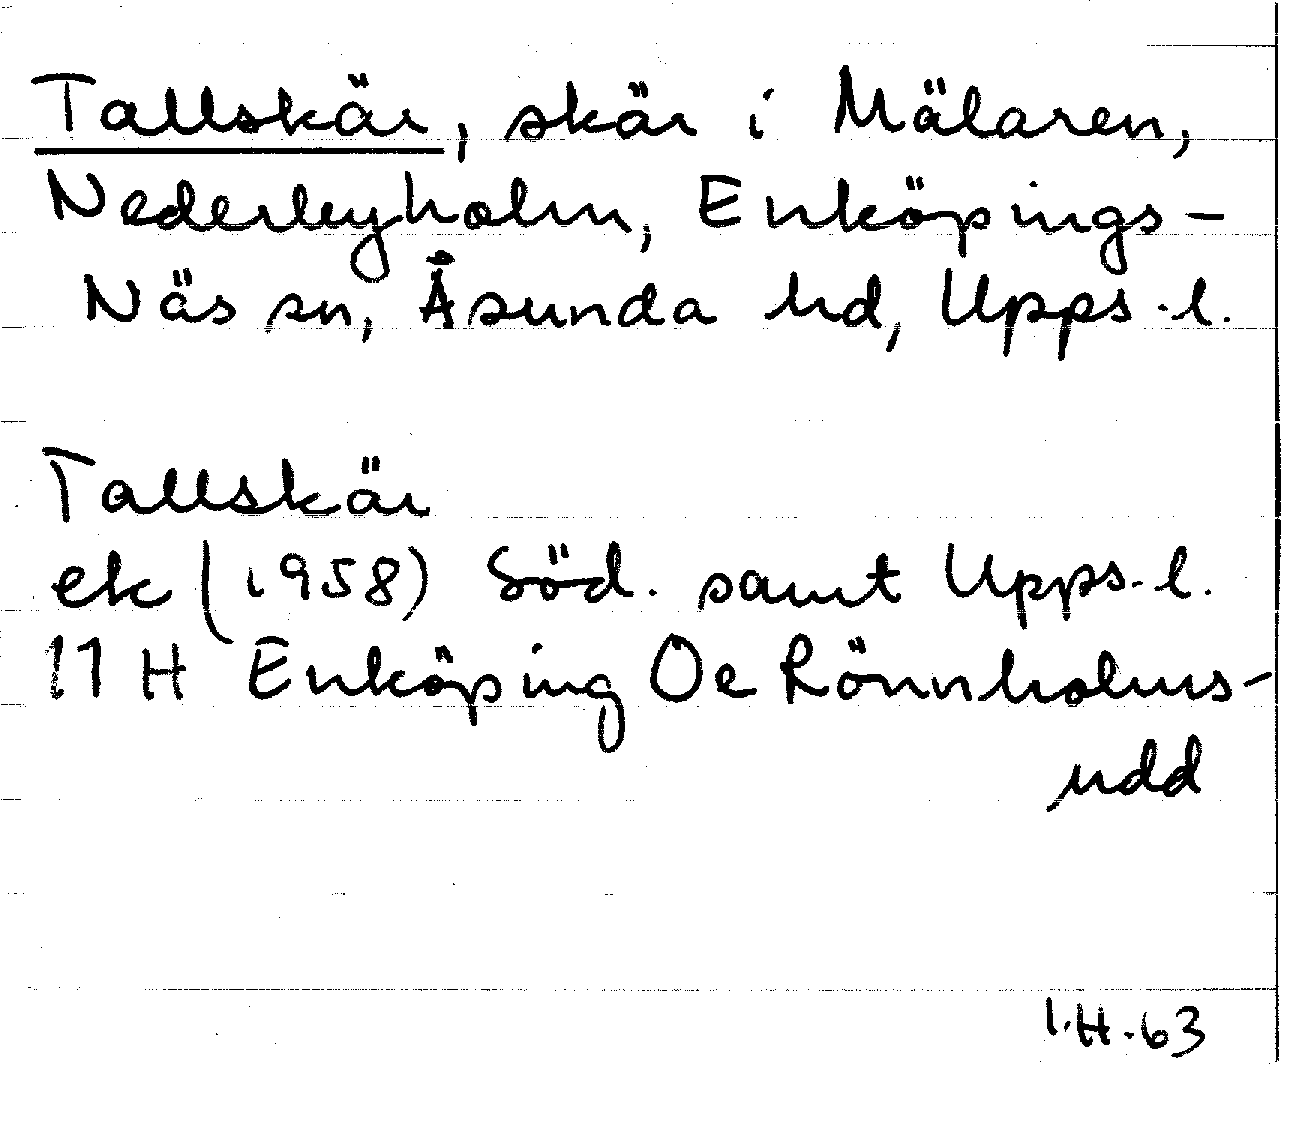 Tallskär, skär i Mälaren,
Nederleyholm, Enköpings-
Näs sn, Åsunda hd, Upps.l.
Tallskär
ek (1958) Söd. samt Upps.l.
11 H Enköping Öe Rönnholms-
udd
I.H.63